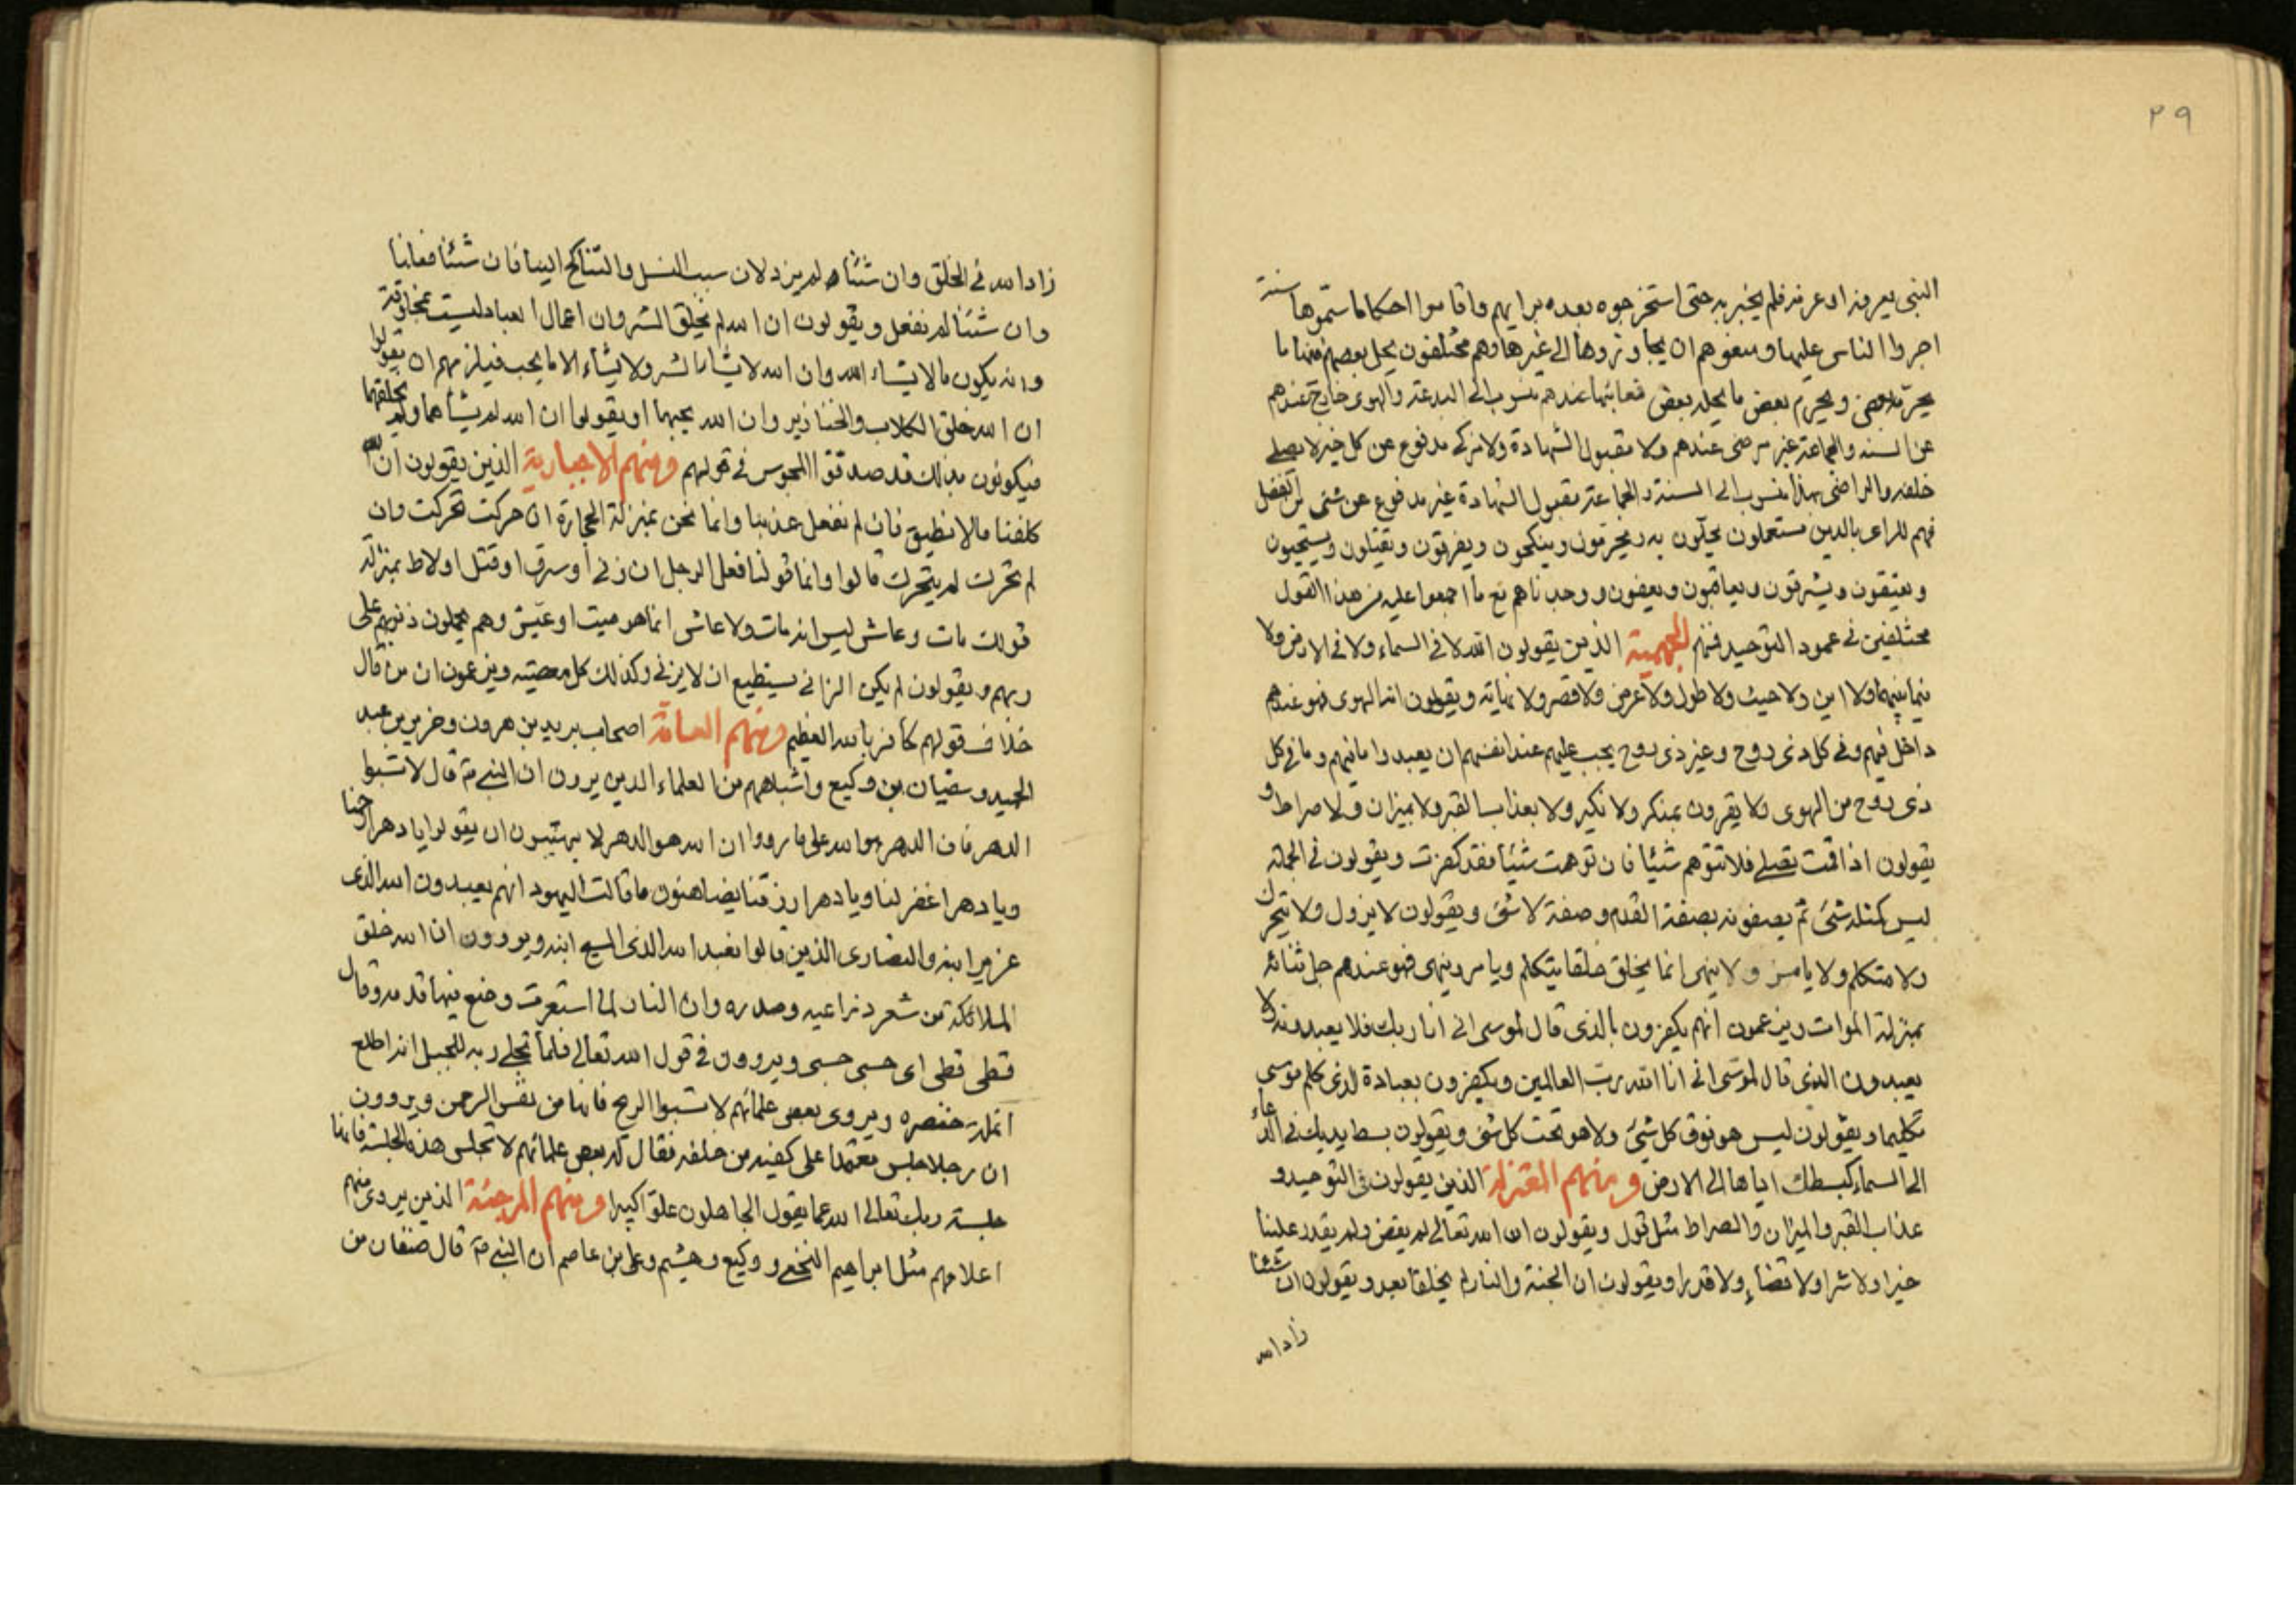 ٢٩
النبى يعرفه او عرفه فلم يخبر به حتى استخرجوه بعده برايهم واقاموا احكاما سمّوها سنة
اجروا الناس عليها ومنعوهم ان يجاوزوها الى غيرها وهم مختلفون يحل بعضهم منها ما
يحرّمه بعض ويحرم بعض ما يحله بعض فعابتها عندهم منسوب الى البدعة والهوى خارج عندهم
عن السنه والجماعة غير مرضى عندهم ولا مقبول الشهادة ولا مزكى مدفوع عن كل خير لا يصلى
خلفه والراضى بهذا منسوب الى السنة والجماعة مقبول الشهادة غير مدفوع عن شئ من الفضل
فهم للراى بالدين مستعملون يحلّون به ويحرّمون وينكحون ويفرقون ويقتلون ويستحيون
ويعتقون ويسترقون ويعاقبون ويعفون ووجدناهم مع ما اجمعوا عليه من هذا القول
مختلفين فى عمود التوحيد فمنهم الجهمية الذين يقولون الله لا فى السماء ولا فى الارض ولا
بينهما ولا اين ولا حيث ولا طول ولا عرض ولا قصر ولا نهاية ويقولون انه الهوى فهو عندهم
داخل فيهم وفى كل ذى روح وغير ذى روح يجب عليهم عند انفسهم ان يعبدوا ما فيهم وما فى كل
ذى روح من الهوى ولا يقرون بمنكر ولا نكير ولا بعذاب القبر ولا بميزان ولا صراط و
يقولون اذا قمت تصلى فلا تتوهم شيئا فان توهمت شيئا فقد كفرت ويقولون فى الجملة
ليس كمثله شئ ثم يصفونه بصفة العدم وصفة لا شئ ويقولون لا يزول ولا يتحرك
ولا متكلم ولا يامر ولا ينهى انما يخلق خلقا يتكلم ويامر وينهى فهو عندهم جل ثنائه
بمنزلة الموات ويزعمون انهم يكفرون بالذى قال لموسى انى انا ربك فلا يعبدونه ولا
يعبدون الذى قال لموسى انى انا الله ربّ العالمين ويكفرون بعبادة الذى كلم موسى
تكليما ويقولون ليس هو فوق كل شئ ولا هو تحت كل شئ ويقولون بسط يديك فى الدعاء
الى السماء كبسطك اياها الى الارض ومنهم المعتزلة الذين يقولون فى التوحيد و
عذاب القبر والميزان والصراط مثل قول ويقولون ان الله تعالى لم يقض ولم يقدر علينا
خيرا ولا شرا ولا قضاء ولا قدرا ويقولون ان الجنة والنار لم يخلقا بعد ويقولون ان شئنا
زاد الله
زاد الله فى الخلق وان شئنا لم يزد لان سبب النسل والتناكح الينا فان شئنا فعلنا
وان شئنا لم نفعل ويقولون ان الله لم يخلق الشر وان اعمال العباد ليست بمخلوقة
وانه يكون ما لا يشاء الله وان الله لا يشاء الشر ولا يشاء الا ما يحب فيلزمهم ان يقولوا
ان الله خلق الكلاب والخنازير وان الله يحبها او يقولوا ان الله لم يشأهما ولم يخلقهما
فيكونون بذلك قد صدقوا المجوس فى قولهم ومنهم الاجبارية الذين يقولون ان الله
كلفنا ما لا نطيق فان لم نفعل عذبنا وانما نحن بمنزلة الحجارة ان حركت تحركت وان
لم تحرك لم يتحرك قالوا وانما قولنا فعل الرجل ان زنى أو سرق او قتل او لاط بمنزلة
قولك مات وعاش ليس انه مات ولا عاش انما هو ميت او عيّش وهم يحملون ذنوبهم على
ربهم ويقولون لم يكن الزانى يستطيع ان لا يزنى وكذلك كل معصيته ويزعمون ان من قال
خلاف قولهم كافر بالله العظيم ومنهم العامة اصحاب يزيد بن هرون وجرير بن عبد
الحميد وسفيان بن وكيع واشباههم من العلماء الذين يروون ان النبى قال لا تسبّوا
الدهر فان الدهر هو الله على ما رووا ان الله هو الدهر لا يهتبون ان يقولوا يا دهر ارحمنا
ويا دهر اغفر لنا ويا دهر ارزقنا يضاهئون ما قالت اليهود انهم يعبدون الله الذى
عزير ابنه والنصارى الذين قالوا نعبد الله الذى المسيح ابنه ويروون ان الله خلق
الملائكة من شعر ذراعيه وصدره وان النار لما استعرت وضع فيها قدمه وقال
قطى قطى اى حسبى حسبى ويروون فى قول الله تعالى فلما تجلى ربه للجبل انه اطلع
انملة خنصره ويروى بعض علمائهم لا تسبوا الريح فانها من نفس الرحمن ويروون
ان رجلا جلس معتمدا على كفيه من خلفه فقال له بعض علمائهم لا تجلس هذه الجلسة فانها
جلسة ربك تعالى الله عما يقول الجاهلون علوا كبيرا ومنهم المرجئة الذين يروى منهم
اعلامهم مثل ابراهيم النخعى ووكيع وهشيم وعلى بن عاصم ان النبى قال صنفان من